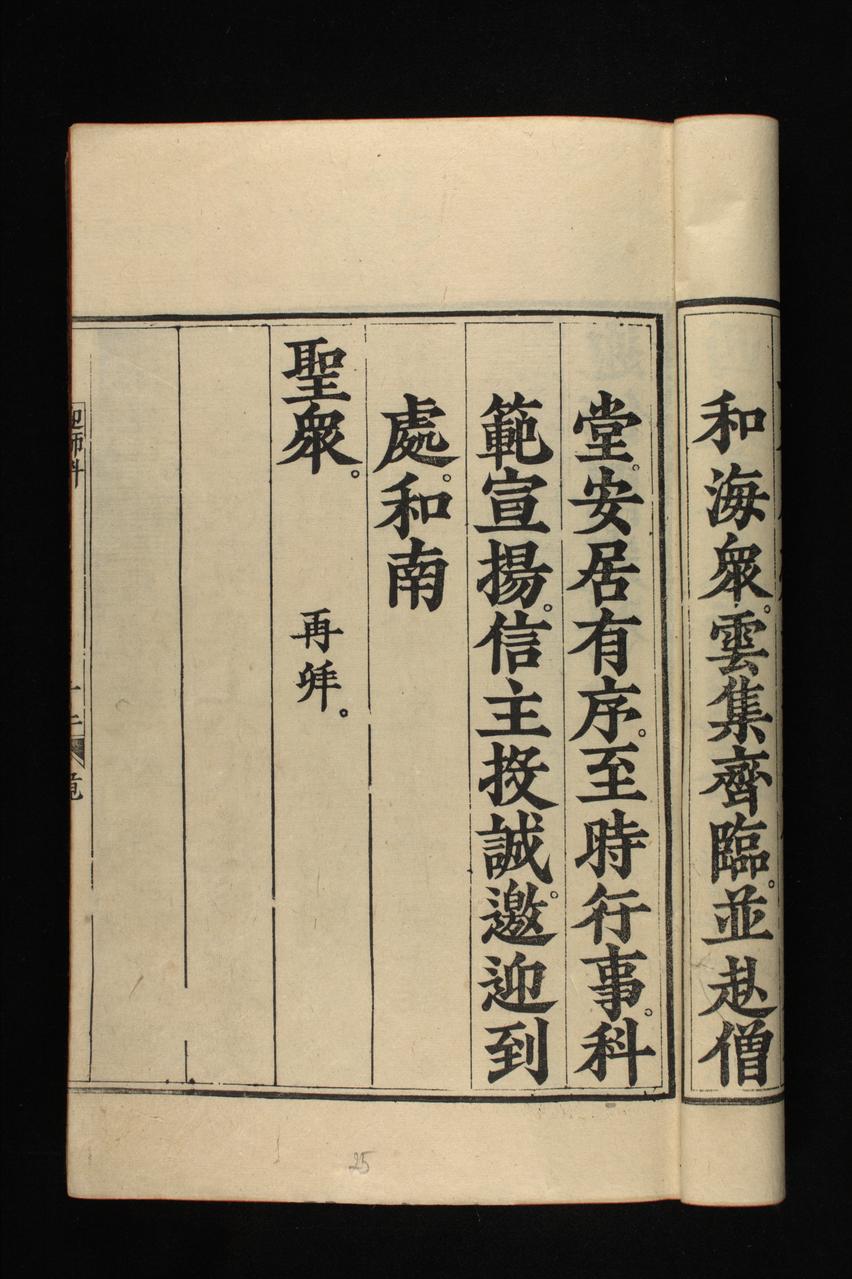 和海衆。雲集齊臨。並赴僧
堂。安居有序。至時行事。科
範宣揚。信主投誠。邀迎到
處。和南
聖衆。
再拜。
25